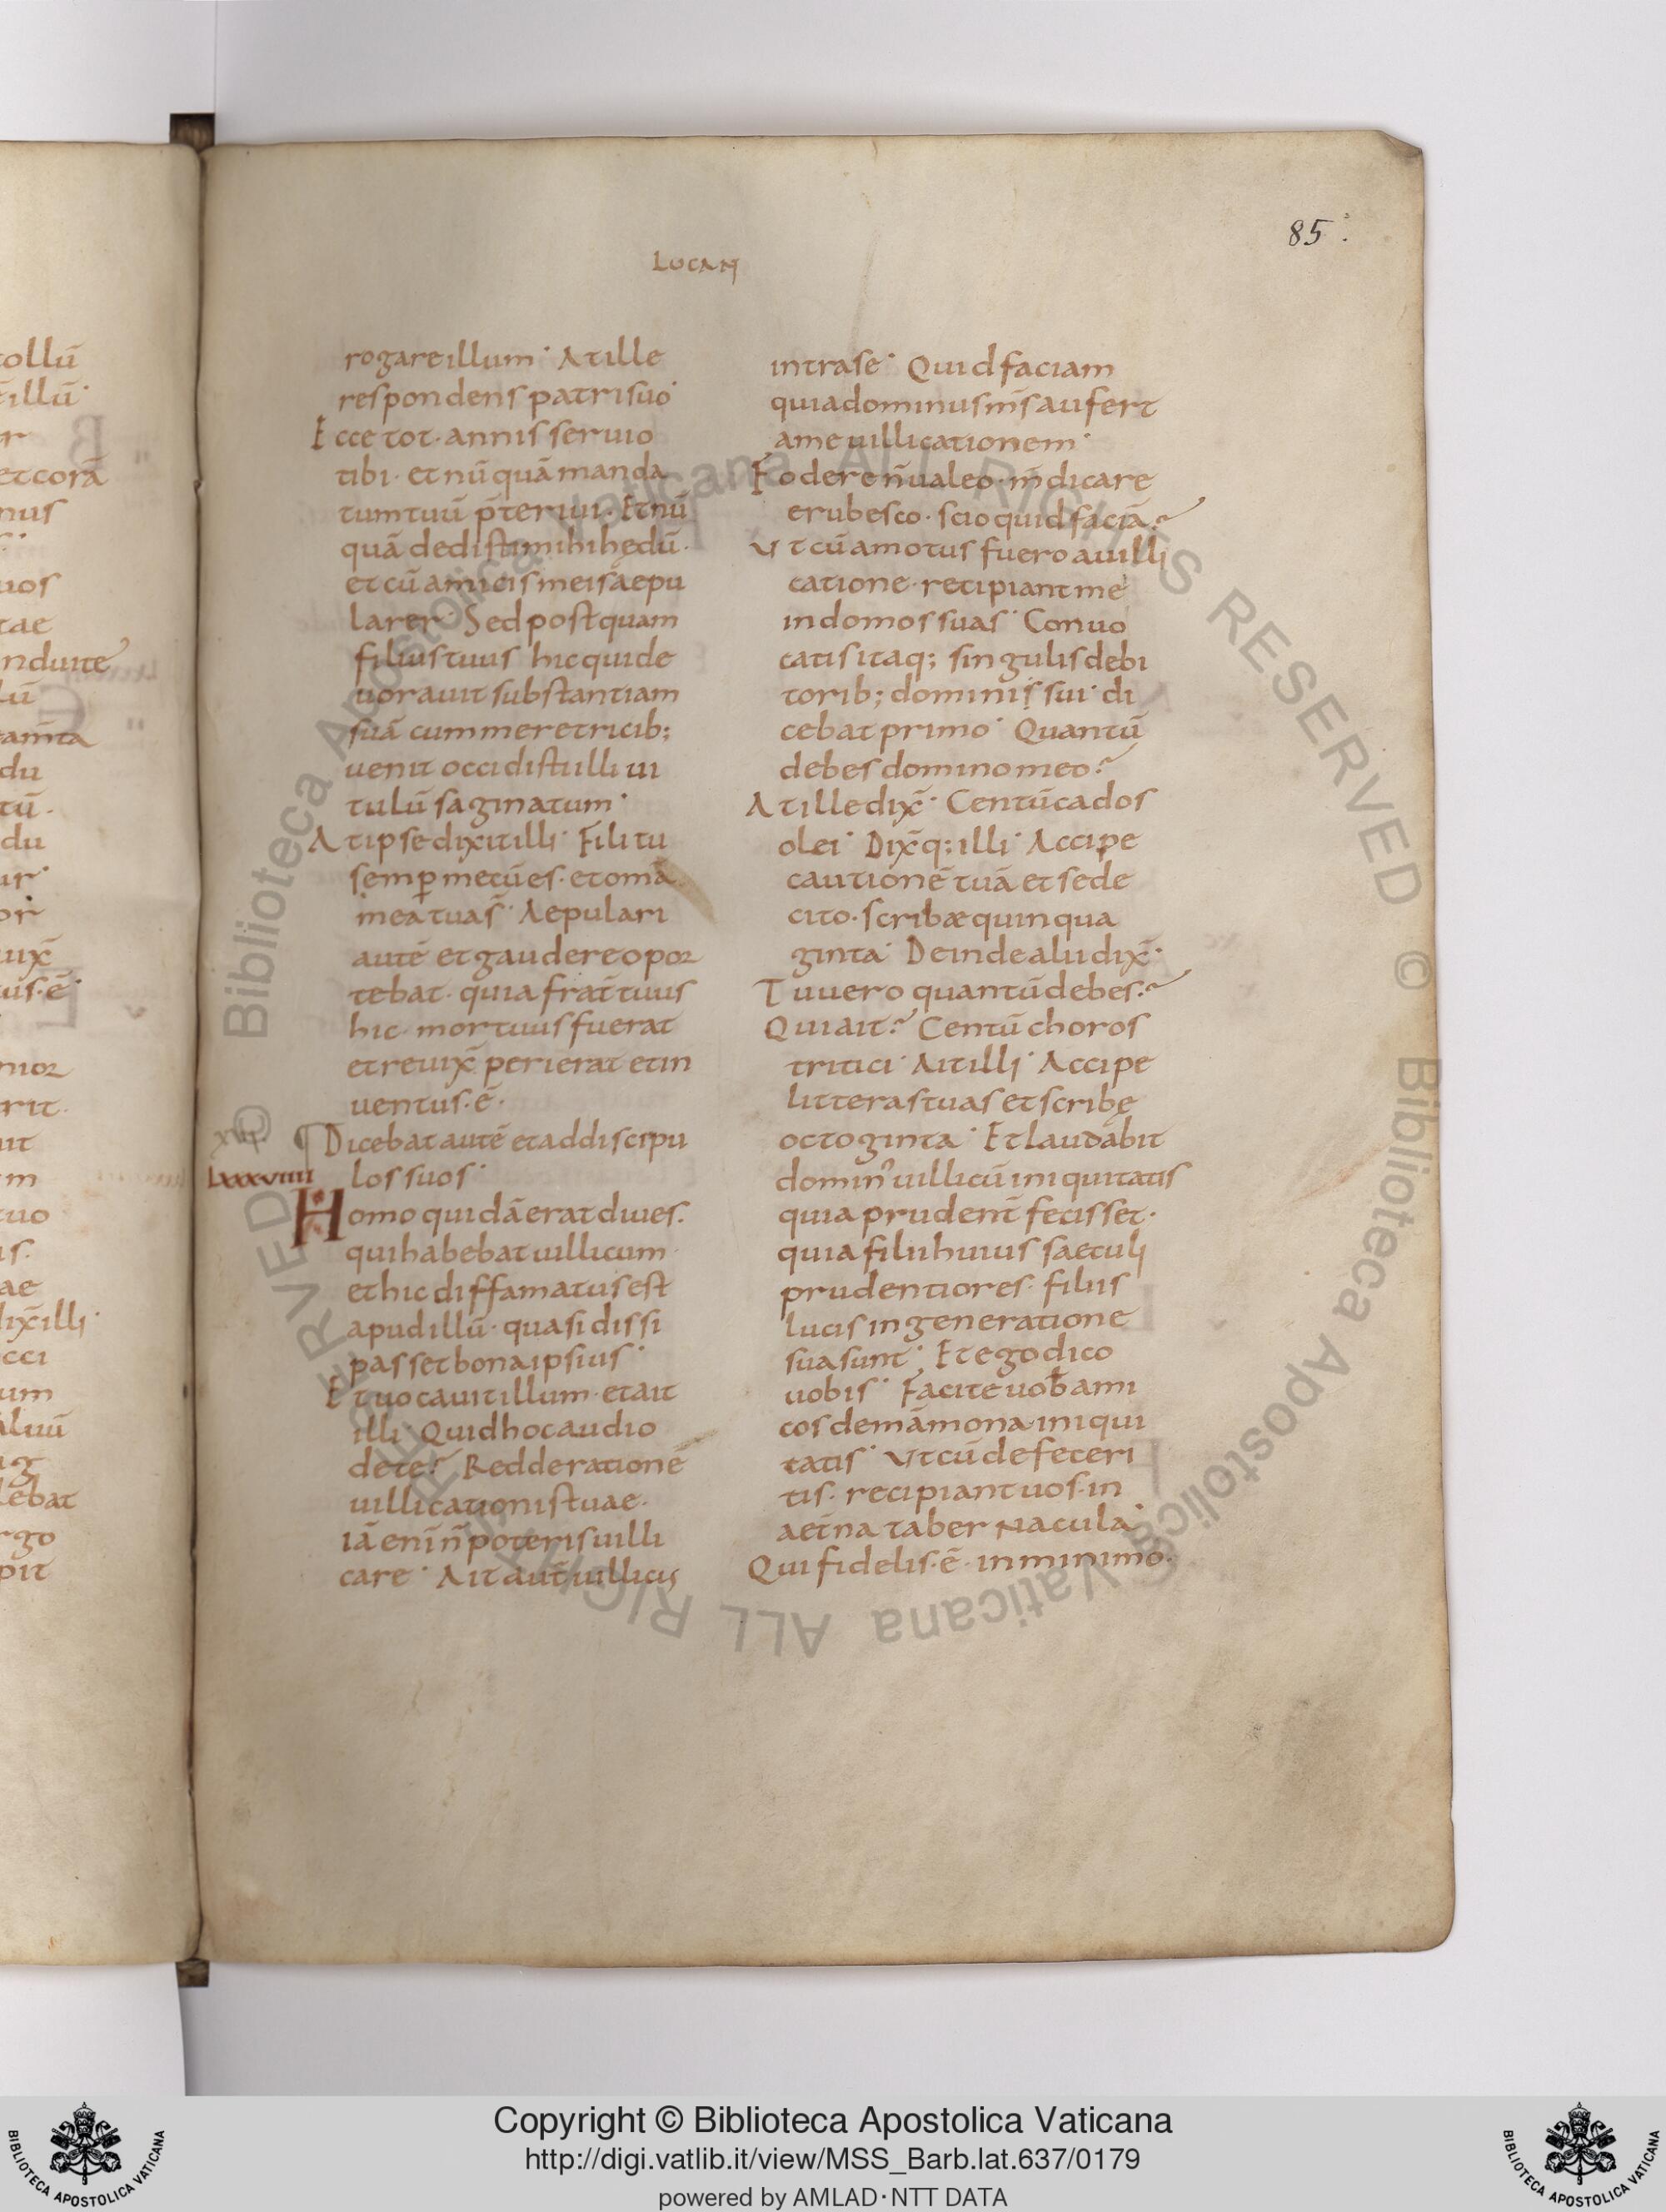 85
LUCAN
rogare illum· At ille
respondens patri suo·
Ecce tot· annis seruio
tibi· et nū quā manda
tum tuū p̄teriui· Et nū
quā dedisti mihi hędū·
et cū amicis meis aepu
larer· Sed postquam
filius tuus hic qui de
uorauit substantiam
suā cum meretricib;
uenit occidisti illi ui
tulū saginatum·
At ipse dixit illi· Fili tu
semꝑ mecū es· et om̄a
mea tua s̄· Aepulari
autē et gaudere opor
tebat· quia frat̄ tuus
hic· mortuus fuerat
et reuix̄ perierat et in
uentus· ē·
¶ Dicebat autē et ad discipu
LXXXVIIII los suos·
Homo quidā erat diues·
qui habebat uillicum
et hic diffamatus est
apud illū· quasi dissi
passet bona ipsius·
Et uocauit illum· et ait
illi· Quid hoc audio
de te? Redde rationē
uillicationis tuae·
Iā enī n̄ poteris uilli
care· Ait aut̄ uillicus
intra se· Quid faciam
quia dominus m̄s aufert
a me uillicationem·
Fodere n̄ ualeo· m̄dicare
erubesco· scio quid faciā?
Ut cū amotus fuero a uilli
catione· recipiant me
in domos suas· Conuo
catis itaq; singulis debi
torib; dominis sui· di
cebat primo· Quantū
debes domino meo?
At ille dix̄· Centū cados
olei· Dix̄q; illi· Accipe
cautionē tuā et sede
cito· scribæ quinqua
ginta· Deinde alii dix̄·
Tu uero quantū debes?
Qui ait? Centū choros
tritici· Ait illi· Accipe
litteras tuas et scribę
octoginta· Et laudabit
domin' uillicū iniquitatis
quia prudent̄ fecisset·
quia filii huius saeculi
prudentiores· filiis
lucis in generatione
sua sunt· Et ego dico
uobis· Facite uob̄ ami
cos de māmona iniqui
tatis· Ut cū defeceri
tis· recipiant uos· in
aet̄na tabernacula·
Qui fidelis· ē· in minimo·
ollū
illū·
r
et corā
nus
uos
tae
nduite
lū
du
tū·
du
ur·
or
uix̄
us· ē·
nior
rit·
uit
m
tuo
is·
ae
dix̄ illi·
cci
um
ebat
rgo
pit
© Biblioteca Apostolica Vaticana ALL RIGHTS RESERVED © Biblioteca Apostolica Vaticana ALL RIGHTS RESERVED
Copyright © Biblioteca Apostolica Vaticana
http://digi.vatlib.it/view/MSS_Barb.lat.637/0179
powered by AMLAD·NTT DATA
BIBLIOTECA APOSTOLICA VATICANA
BIBLIOTECA APOSTOLICA VATICANA